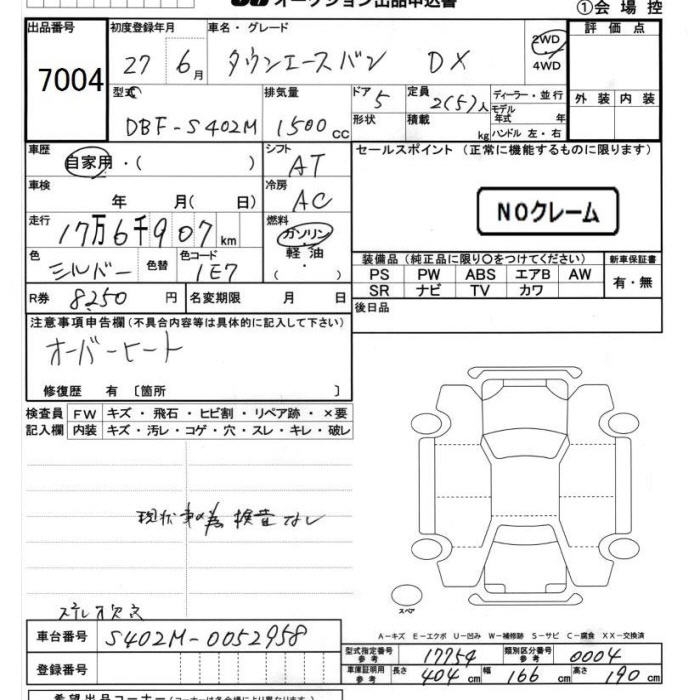 オークション出品申込書
①会場控
出品番号 初度登録年月 車名・グレード 2WD 評価点
7004 27 6月 タウンエースバン DX 4WD
型式 排気量 ドア 5 定員 2(5)人 ディーラー・並行 外装 内装
DBF-S402M 1500cc 形状 積載 kg モデル年式 年 ハンドル 左・右
車歴 自家用・( ) シフト AT セールスポイント (正常に機能するものに限ります)
車検 年 月( 日) 冷房 AC
NOクレーム
走行 17万6千907km 燃料 ガソリン
色 シルバー 色替 色コード 1E7 軽油 ( )
装備品 (純正品に限り○をつけてください) 新車保証書
PS PW ABS エアB AW 有・無
SR ナビ TV カワ
R券 8250円 名変期限 月 日 後日品
注意事項申告欄(不具合内容等は具体的に記入して下さい)
オーバーヒート
修復歴 有 〔箇所 〕
検査員 FW キズ・飛石・ヒビ割・リペア跡・×要
記入欄 内装 キズ・汚レ・コゲ・穴・スレ・キレ・破レ
現状車の為検査なし
スペア
ステレオ欠品
A-キズ E-エクボ U-凹み W-補修跡 S-サビ C-腐食 XX-交換済
車台番号 S402M-0052958
型式指定番号 参考 17754 類別区分番号 参考 0004
登録番号 車庫証明用 参考 長さ 404cm 幅 166cm 高さ 190cm
希望出品コーナー(コーナーは各会場により異なります)